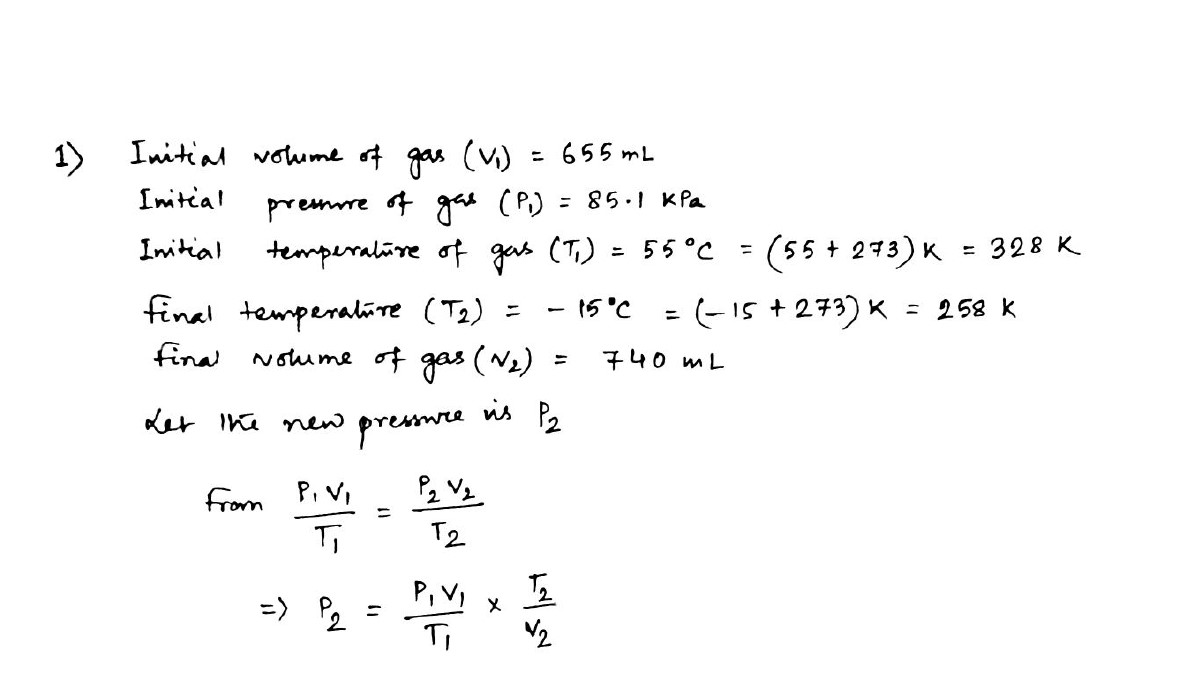 1) Initial volume of gas (V₁) = 655 mL
Initial pressure of gas (P₁) = 85.1 KPa
Initial temperature of gas (T₁) = 55°C = (55 + 273) K = 328 K
final temperature (T₂) = - 15°C = (-15 + 273) K = 258 K
final volume of gas (V₂) = 740 mL
Let the new pressure is P₂
from P₁V₁/T₁ = P₂V₂/T₂
=> P₂ = P₁V₁/T₁ × T₂/V₂